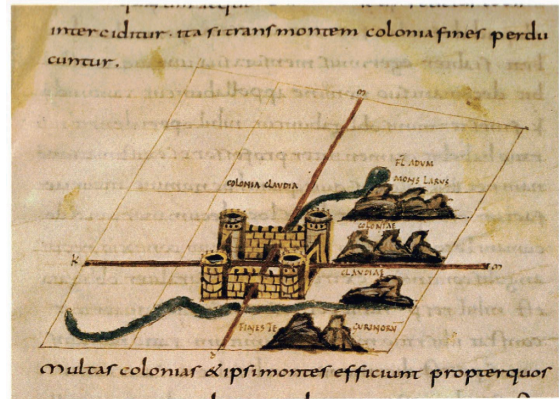 interciditur. ita si trans montem colonia fines perdu
cuntur.
m
FL ADUM
MONS LARUS
COLONIA CLAUDIA
COLONIAE
k
m
CLAUDIAE
FINES TE
CURINORU
Multas colonias & ipsi montes efficiunt propter quos